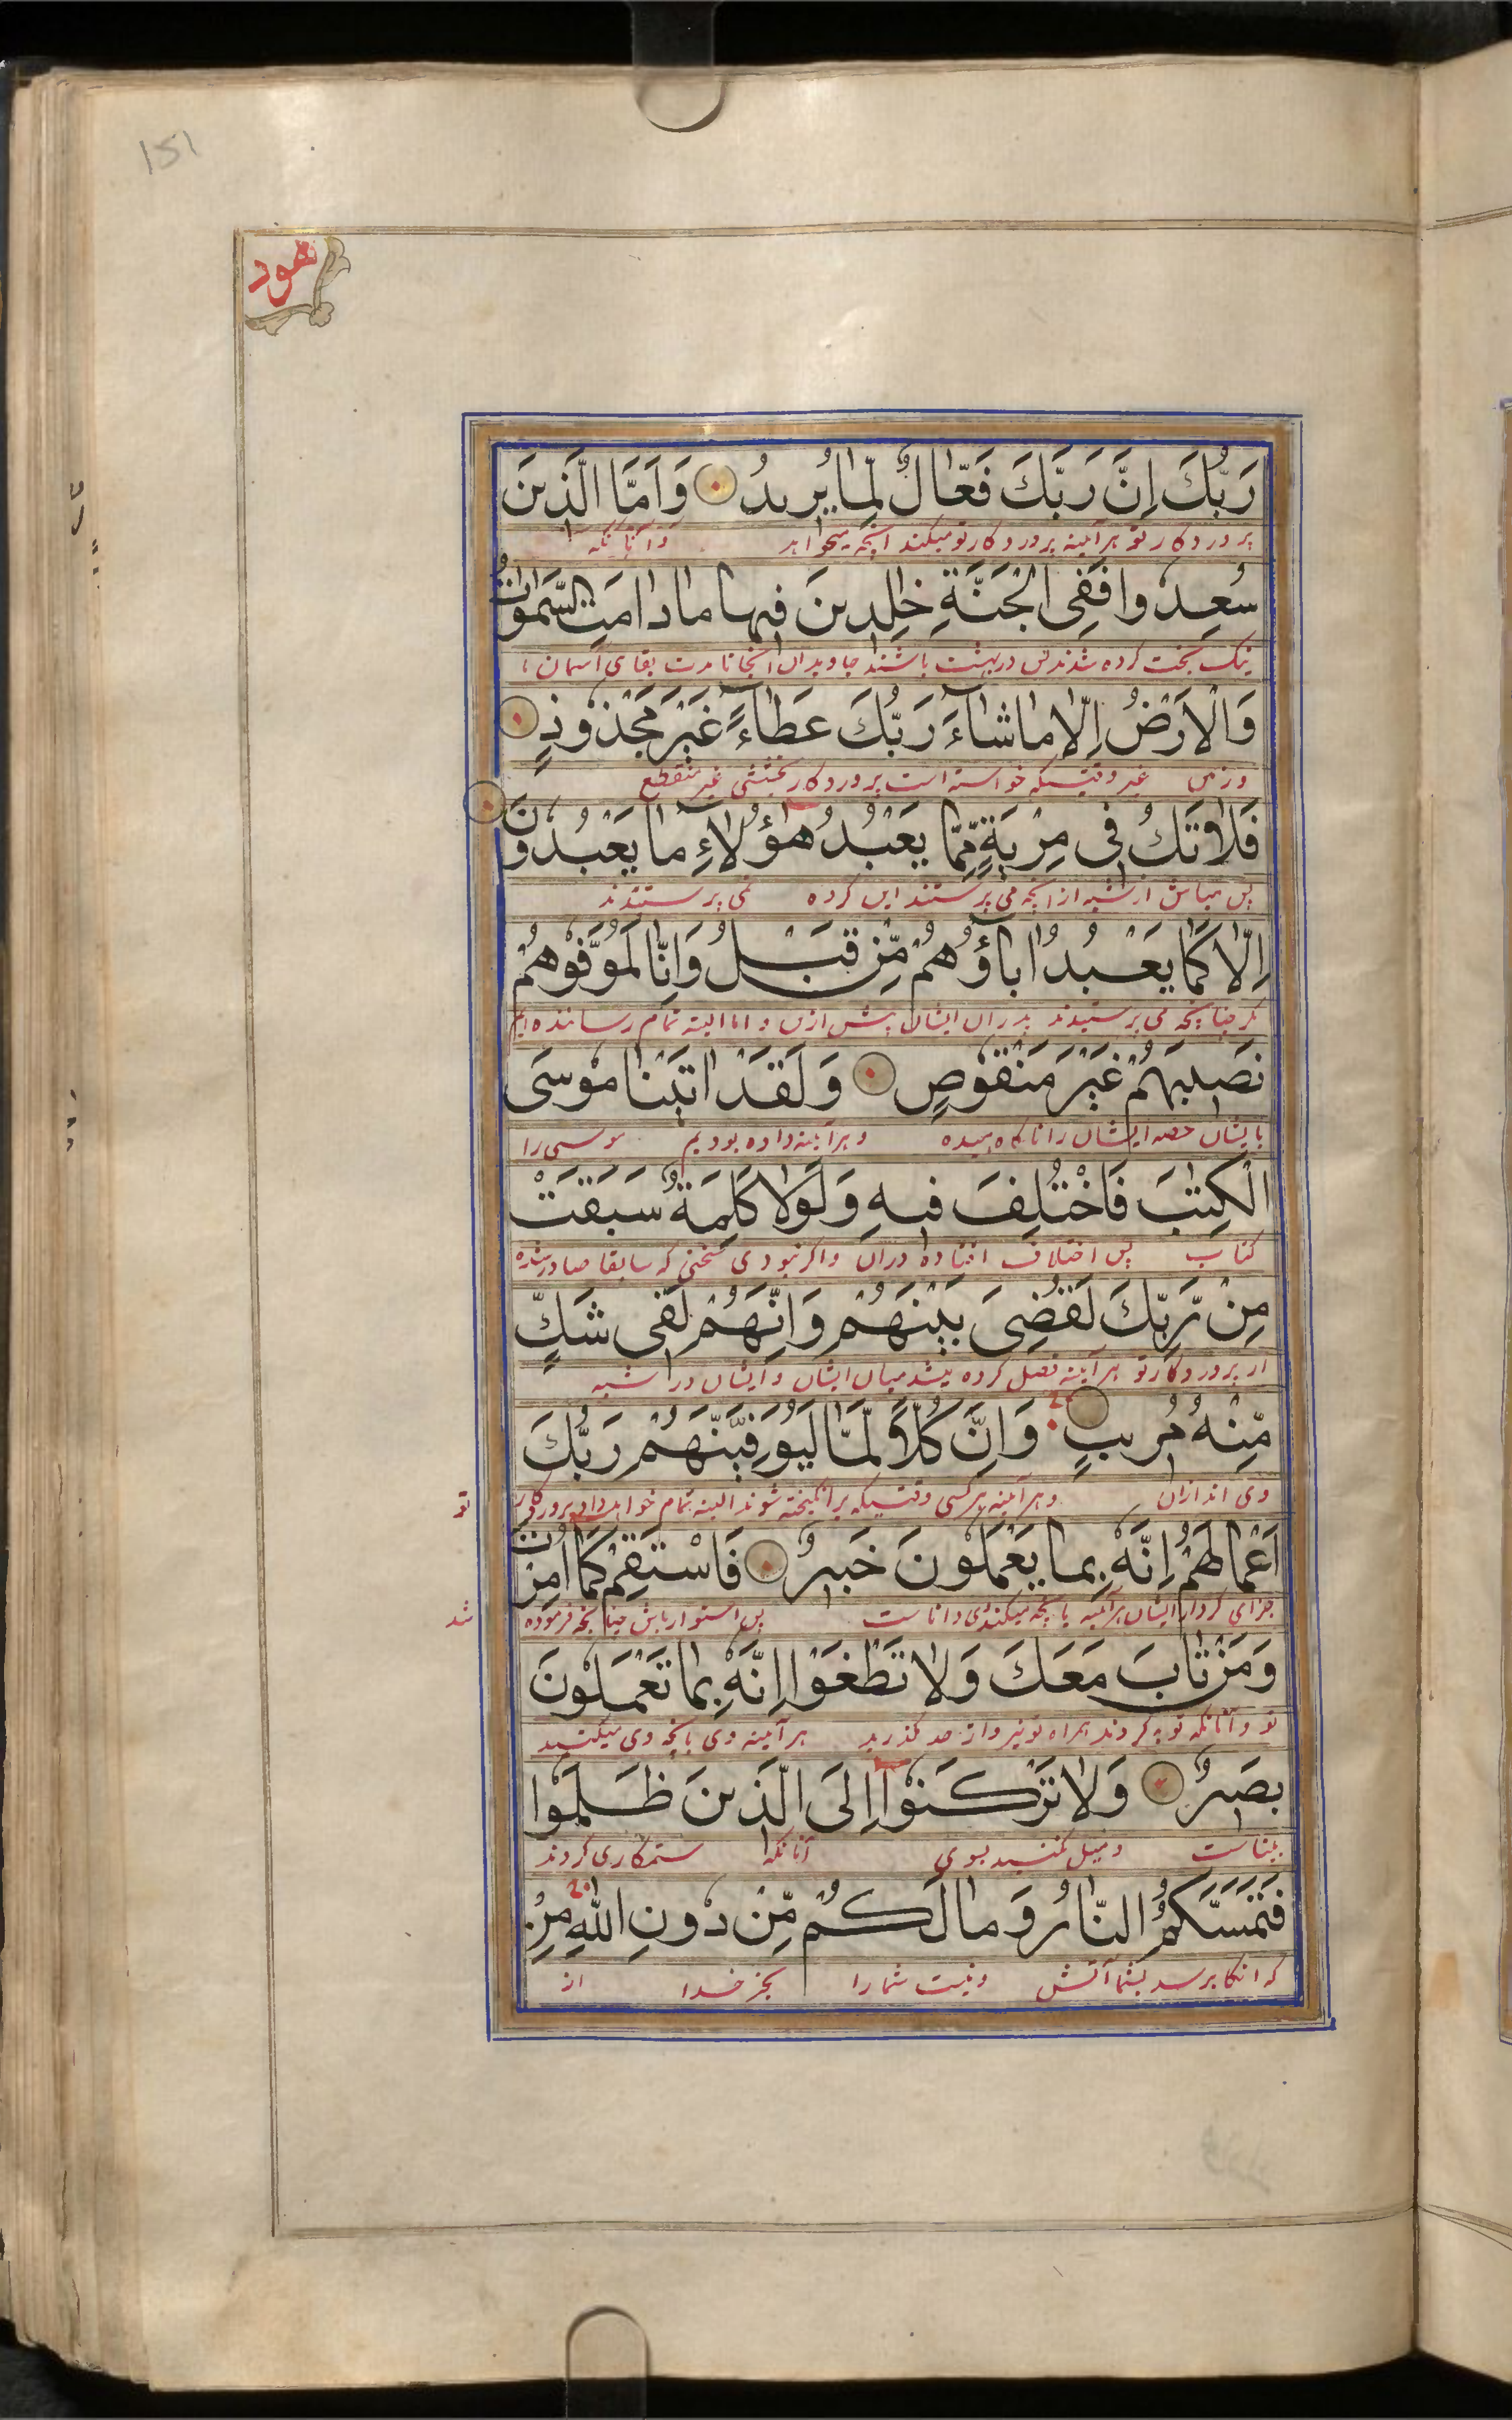 151
هود
رَبُّكَ اِنَّ رَبَّكَ فَعَّالٌ لِّمَا يُرِيدُ وَاَمَّا الَّذِينَ
پروردگار تو هرآئینه پروردگار تو میکند آنچه میخواهد وآنانکه
سُعِدُوا فَفِى الْجَنَّةِ خٰلِدِينَ فِيهَا مَا دَامَتِ السَّمٰوَاتُ
نیک بخت کرده شدند پس در بهشت باشند جاویدان آنجا تا مدت بقای آسمان
وَالْاَرْضُ اِلَّا مَا شَآءَ رَبُّكَ عَطَآءً غَيْرَ مَجْذُوذٍ
وزمین غیر وقتیکه خواسته است پروردگار بخششی غیر منقطع
فَلَا تَكُ فِى مِرْيَةٍ مِّمَّا يَعْبُدُ هٰٓؤُلَآءِ مَا يَعْبُدُونَ
پس مباش در شبه از آنچه می پرستند این گروه نمی پرستند
اِلَّا كَمَا يَعْبُدُ اٰبَآؤُهُمْ مِّنْ قَبْلُ وَاِنَّا لَمُوَفُّوهُمْ
مگر چنانچه می پرستیدند پدران ایشان پیش ازین و اما البته تمام رساننده ایم
نَصِيبَهُمْ غَيْرَ مَنْقُوصٍ وَلَقَدْ اٰتَيْنَا مُوسَى
بایشان حصه ایشان را ناکاهیده وهرآئینه داده بودیم موسی را
الْكِتٰبَ فَاخْتُلِفَ فِيهِ وَلَوْلَا كَلِمَةٌ سَبَقَتْ
کتاب پس اختلاف افتاده دران واگر نبودی سخنی که سابقا صادر شده
مِنْ رَّبِّكَ لَقُضِىَ بَيْنَهُمْ وَاِنَّهُمْ لَفِى شَكٍّ
از پروردگار تو هرآئینه فصل کرده میشد میان ایشان وایشان در شبه
مِّنْهُ مُرِيبٍ وَاِنَّ كُلًّا لَّمَّا لَيُوَفِّيَنَّهُمْ رَبُّكَ
وهرآئینه هر کسی وقتیکه برانگیخته شوند البته تمام خواهد داد پروردگار
تو
اَعْمَالَهُمْ اِنَّهُ بِمَا يَعْمَلُونَ خَبِيرٌ فَاسْتَقِمْ كَمَا اُمِرْتَ
جزای کردار ایشان هرآئینه وی بآنچه میکنند دانا ست پس استوار باش چنانچه فرموده
شد
وَمَنْ تَابَ مَعَكَ وَلَا تَطْغَوْا اِنَّهُ بِمَا تَعْمَلُونَ
تو وآنانکه توبه کردند همراه تو نیز واز حد مگذرید هرآئینه وی بآنچه میکنید
بَصِيرٌ وَلَا تَرْكَنُوٓا اِلَى الَّذِينَ ظَلَمُوا
بیناست ومیل مکنید بسوی آنانکه ستمکاری کردند
فَتَمَسَّكُمُ النَّارُ وَمَا لَكُمْ مِّنْ دُونِ اللّٰهِ مِنْ
که آنگاه برسد بشما آتش ونیست شما را بجز خدا از